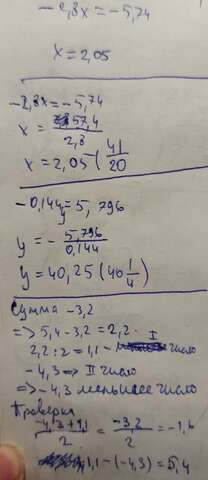 -2,8x = -5,74
x = 2,05
-2,8x = -5,74
x = 57,4
2,8
x = 2,05 ( 41
20
-0,144y = 5,796
y = - 5,796
0,144
y = 40,25 (40 1
4 )
Сумма -3,2
=> 5,4 - 3,2 = 2,2.
2,2 : 2 = 1,1 - I число
-4,3 => II число
=> -4,3 меньшее число
Проверка
-4,3+1,1
2 = -3,2
2 = -1,6
1,1 - (-4,3) = 5,4